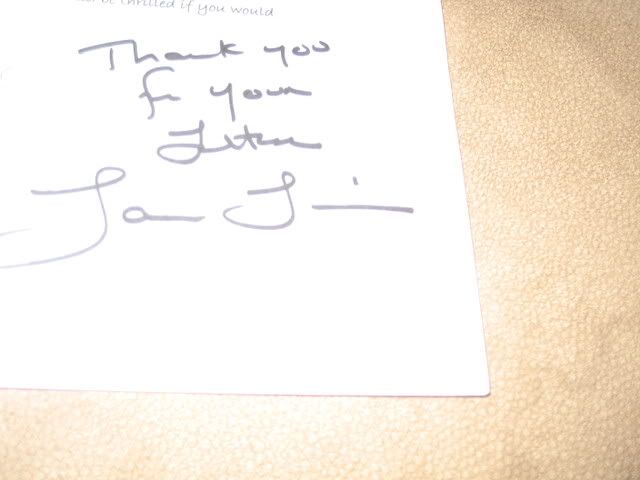 be thrilled if you would
Thank you
for your
Letter